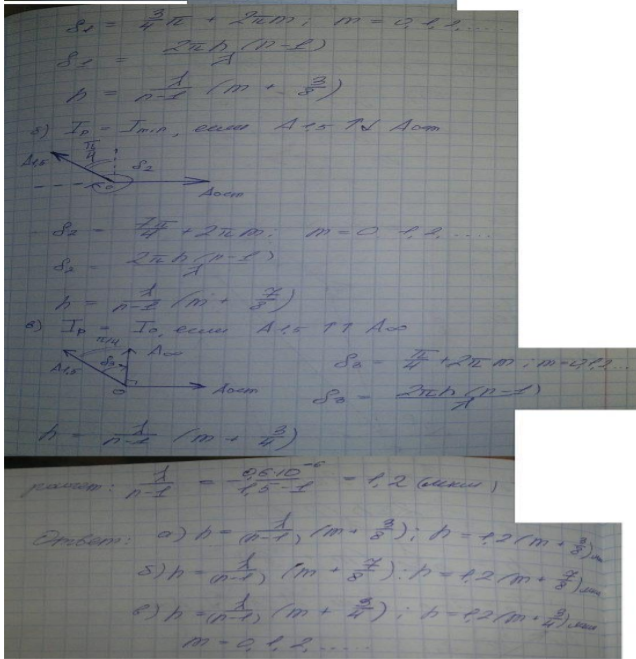 δ₁ = 3/4 π + 2πm; m = 0,1,2,....
δ₁ = 2πh(n-1)/λ
h = λ/(n-1) (m + 3/8)
б) Iр = Imin, если A1,5 ↑↓ Aост
π/4
A1,5
δ₂
O
Aост
δ₂ = 7π/4 + 2πm; m = 0 1,2,.....
δ₂ = 2πh(n-1)/λ
h = λ/(n-1) (m + 7/8)
в) Iр = I₀, если A1,5 ↑↑ A∞
π/4
A∞
A1,5
δ₃
O
Aост
δ₃ = π/4 + 2πm; m=0,1,2...
δ₃ = 2πh(n-1)/λ
h = λ/(n-1) (m + 3/4)
расчет: λ/(n-1) = 0,6·10⁻⁶/(1,5-1) = 1,2 (мкм)
Ответ: а) h = λ/(n-1) (m + 3/8); h = 1,2 (m + 3/8) мкм
б) h = λ/(n-1) (m + 7/8); h = 1,2 (m + 7/8) мкм
в) h = λ/(n-1) (m + 3/4); h = 1,2 (m + 3/4) мкм
m = 0,1,2,.....